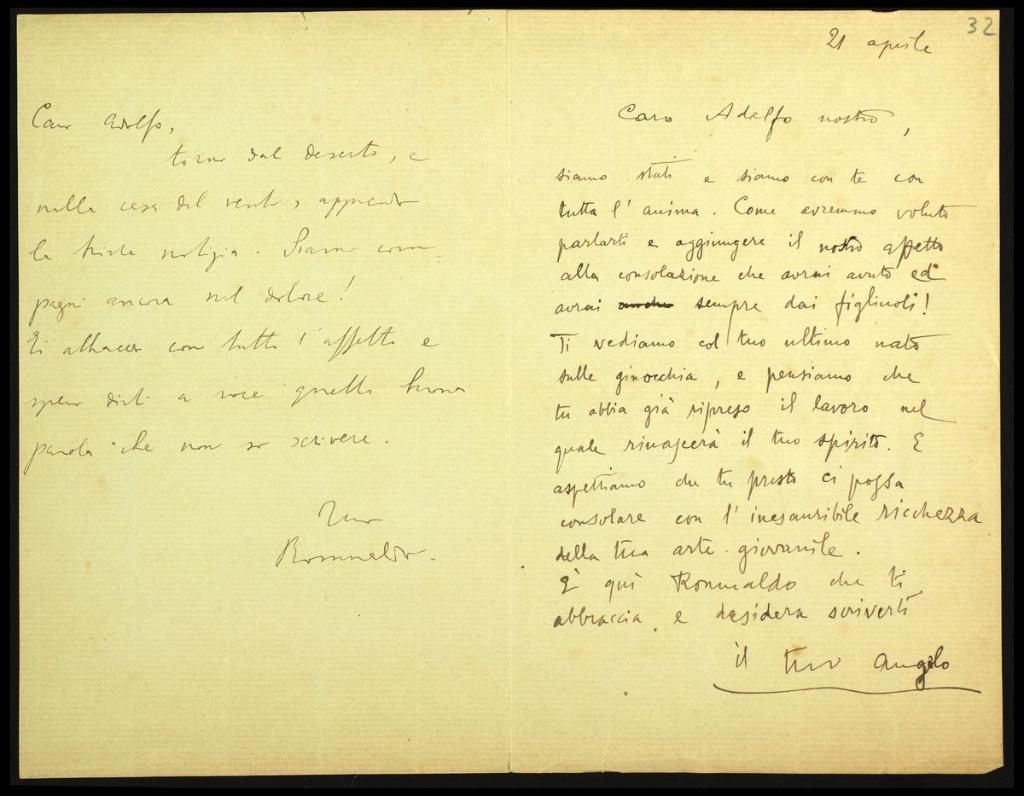 32
21 aprile
Caro Adolfo nostro,
siamo stati e siamo con te con
tutta l'anima. Come avremmo voluto
parlarti e aggiungere il nostro affetto
alla consolazione che avrai avuto ed
avrai anche sempre dai figliuoli!
Ti vediamo col tuo ultimo nato
sulle ginocchia, e pensiamo che
tu abbia già ripreso il lavoro nel
quale rinascerà il tuo spirito. E
aspettiamo che tu presto ci possa
consolare con l'inesauribile ricchezza
della tua arte giovanile.
È qui Romualdo che ti
abbraccia e desidera scriverti
il tuo Angelo
Caro Adolfo,
torno dal deserto, e
nella casa del apprendo
la triste notizia. Siamo com-
pagni ancora nel dolore!
Ti abbraccio con tutto l'affetto e
spero dirti a voce quella buona
parola che non so scrivere.
Tuo
Romualdo.